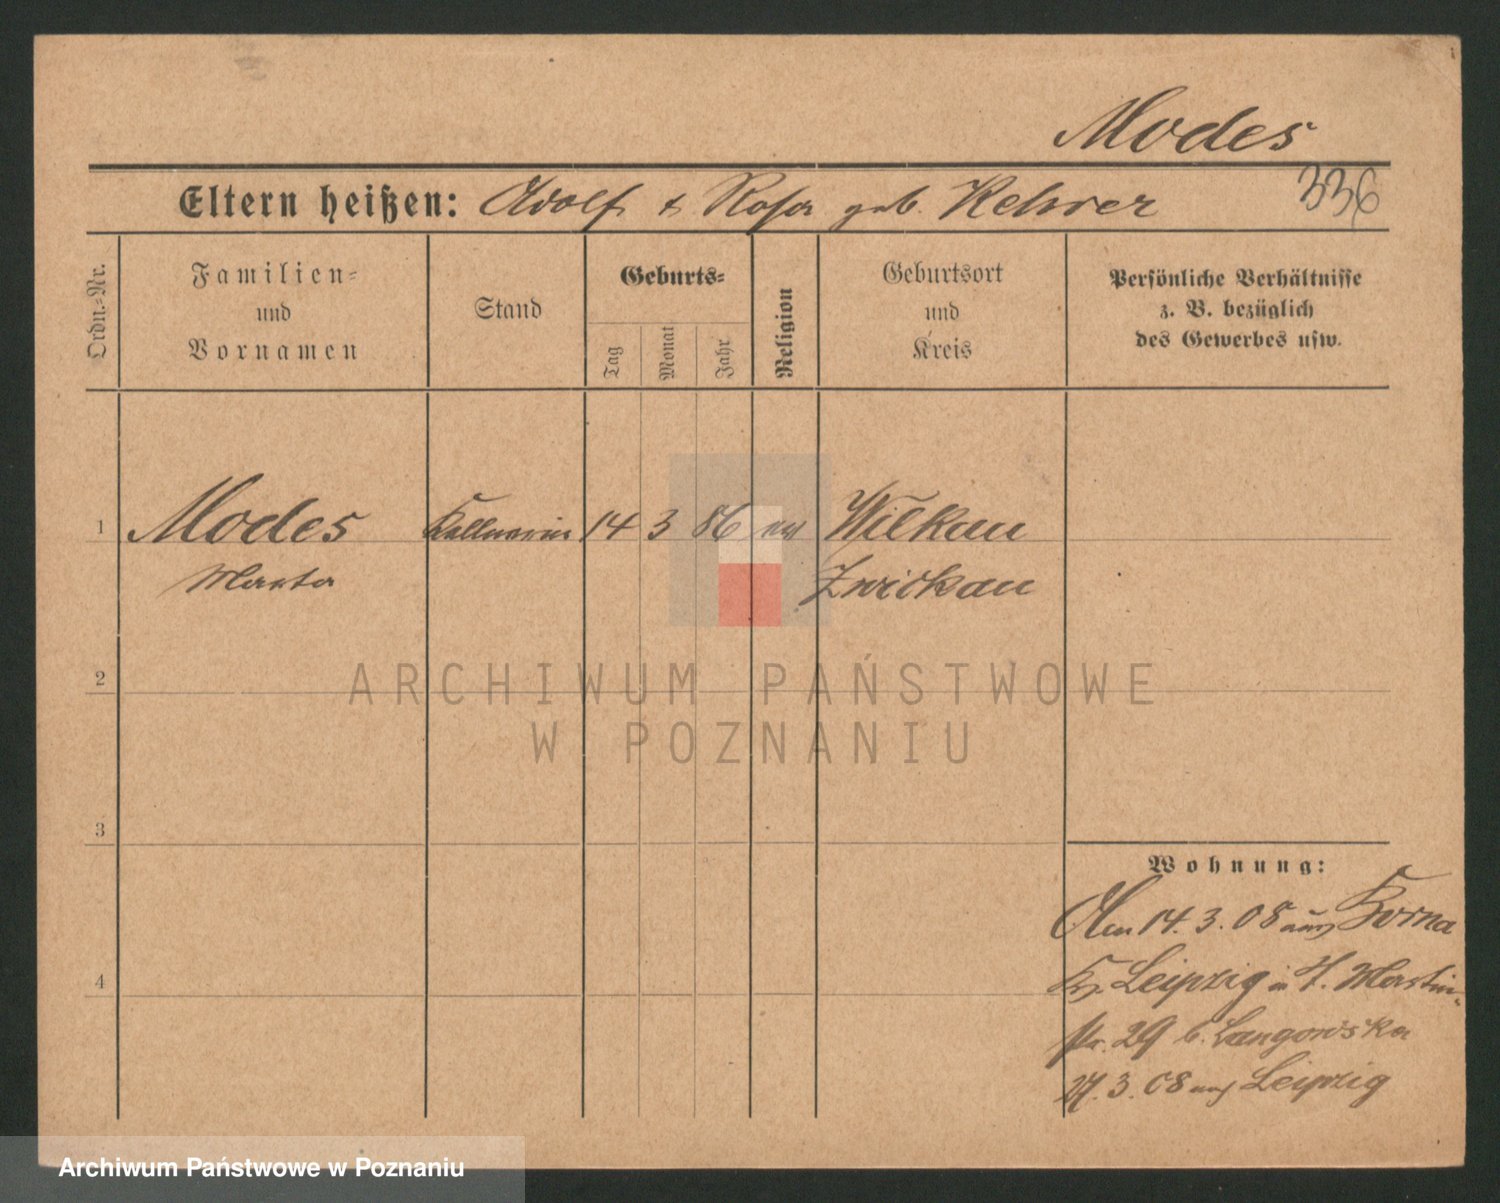 Modes
336
Eltern heißen: Adolf & Rosa geb. Kehrer
Ordn.-Nr.
Familien-
und
Vornamen
Stand
Geburts-
Tag
Monat
Jahr
Religion
Geburtsort
und
Kreis
Persönliche Verhältnisse
z. B. bezüglich
des Gewerbes usw.
1 Modes Kellnerin 14 3 86 ev Wilkau
Marta Zwickau
2
ARCHIWUM PAŃSTWOWE
W POZNANIU
3
Wohnung:
14. 3. 08 aus Borna
Kr. Leipzig in St. Martin-
str. 29 b. Langowska
27. 3. 08 nach Leipzig
4
Archiwum Państwowe w Poznaniu